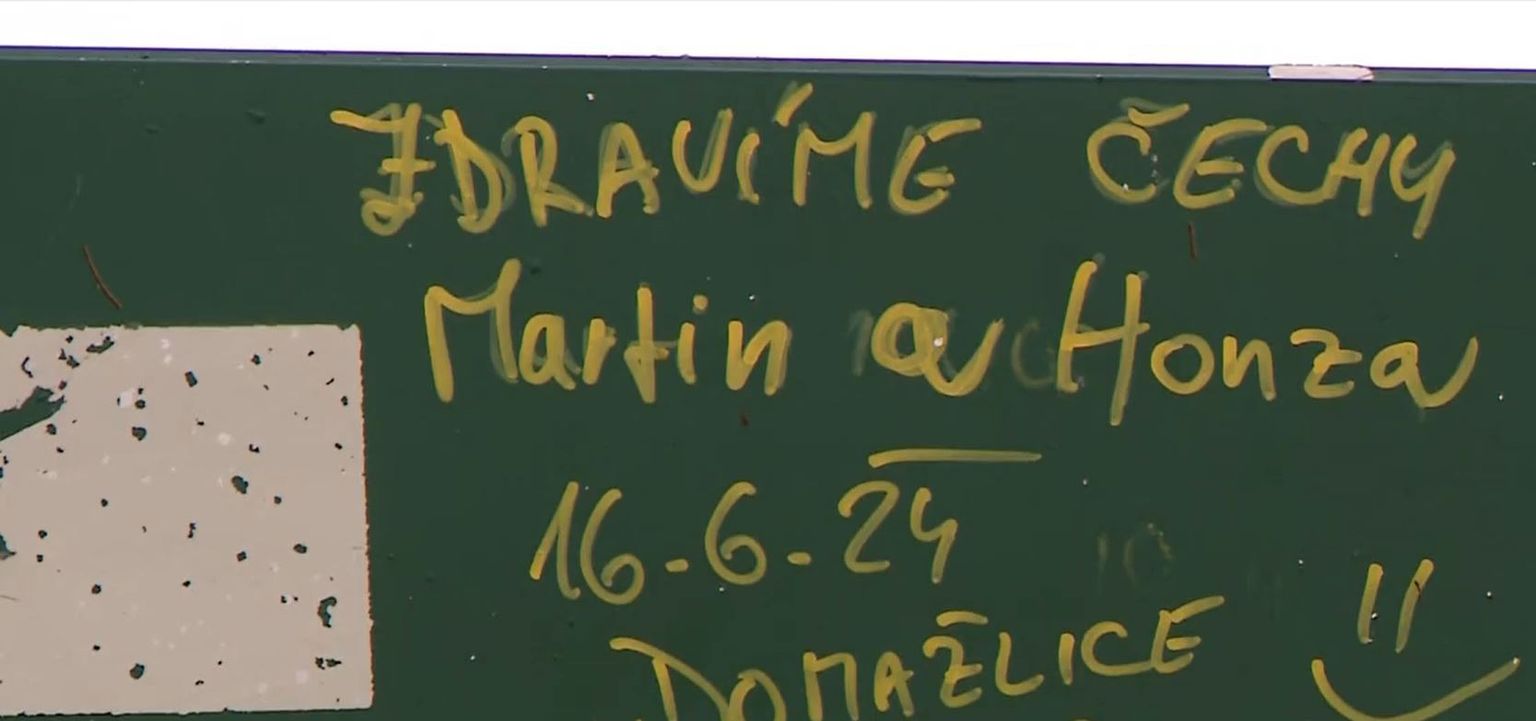 ZDRAVÍME ČECHY
Martin a Honza
16.6.24
DOMAŽLICE